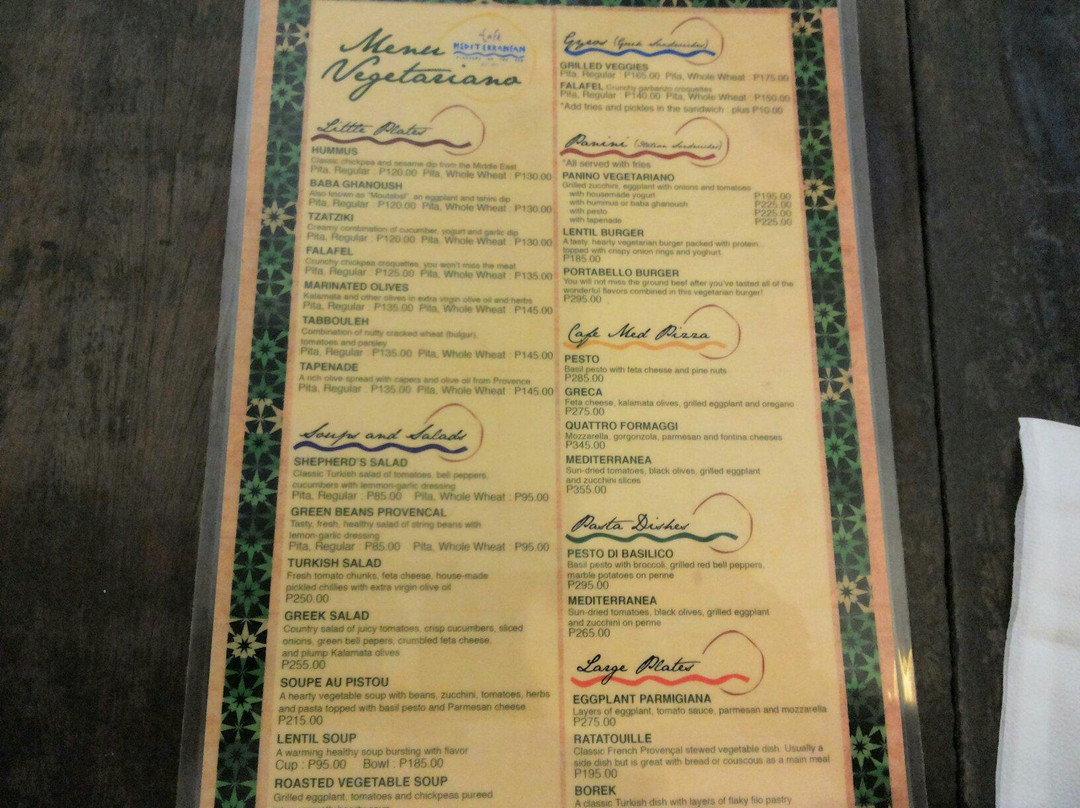 Menu
Vegetariano
Café
MEDITERRANEAN
Little Plates
HUMMUS
Classic chickpea and sesame dip from the Middle East
Pita, Regular : P120.00 Pita, Whole Wheat : P130.00
BABA GHANOUSH
Also known as "Moutabal", an eggplant and tahini dip
Pita, Regular : P120.00 Pita, Whole Wheat : P130.00
TZATZIKI
Creamy combination of cucumber, yogurt and garlic dip
Pita, Regular : P120.00 Pita, Whole Wheat : P130.00
FALAFEL
Crunchy chickpea croquettes, you won't miss the meat
Pita, Regular : P125.00 Pita, Whole Wheat : P135.00
MARINATED OLIVES
Kalamata and other olives in extra virgin olive oil and herbs
Pita, Regular : P135.00 Pita, Whole Wheat : P145.00
TABBOULEH
Combination of nutty cracked wheat (bulgur),
tomatoes and parsley
Pita, Regular : P135.00 Pita, Whole Wheat : P145.00
TAPENADE
A rich olive spread with capers and olive oil from Provence
Pita, Regular : P135.00 Pita, Whole Wheat : P145.00
Soups and Salads
SHEPHERD'S SALAD
Classic Turkish salad of tomatoes, bell peppers,
cucumbers with lemmon-garlic dressing
Pita, Regular : P85.00 Pita, Whole Wheat : P95.00
GREEN BEANS PROVENCAL
Tasty, fresh, healthy salad of string beans with
lemon-garlic dressing
Pita, Regular : P85.00 Pita, Whole Wheat : P95.00
TURKISH SALAD
Fresh tomato chunks, feta cheese, house-made
pickled chillies with extra virgin olive oil
P250.00
GREEK SALAD
Country salad of juicy tomatoes, crisp cucumbers, sliced
onions, green bell pepers, crumbled feta cheese,
and plump Kalamata olives
P255.00
SOUPE AU PISTOU
A hearty vegetable soup with beans, zucchini, tomatoes, herbs
and pasta topped with basil pesto and Parmesan cheese
P215.00
LENTIL SOUP
A warming healthy soup bursting with flavor
Cup : P95.00 Bowl : P185.00
ROASTED VEGETABLE SOUP
Grilled eggplant, tomatoes and chickpeas pureed
Gyros (Greek Sandwiches)
GRILLED VEGGIES
Pita, Regular : P165.00 Pita, Whole Wheat : P175.00
FALAFEL Crunchy garbanzo croquettes
Pita, Regular : P140.00 Pita, Whole Wheat : P150.00
*Add fries and pickles in the sandwich : plus P10.00
Panini (Italian Sandwiches)
*All served with fries
PANINO VEGETARIANO
Grilled zucchini, eggplant with onions and tomatoes
with housemade yogurt P195.00
with hummus or baba ghanoush P225.00
with pesto P225.00
with tapenade P225.00
LENTIL BURGER
A tasty, hearty vegetarian burger packed with protein,
topped with crispy onion rings and yoghurt
P185.00
PORTABELLO BURGER
You will not miss the ground beef after you've tasted all of the
wonderful flavors combined in this vegetarian burger!
P295.00
Cafe Med Pizza
PESTO
Basil pesto with feta cheese and pine nuts
P285.00
GRECA
Feta cheese, kalamata olives, grilled eggplant and oregano
P275.00
QUATTRO FORMAGGI
Mozzarella, gorgonzola, parmesan and fontina cheeses
P345.00
MEDITERRANEA
Sun-dried tomatoes, black olives, grilled eggplant
and zucchini slices
P355.00
Pasta Dishes
PESTO DI BASILICO
Basil pesto with broccoli, grilled red bell peppers,
marble potatoes on penne
P295.00
MEDITERRANEA
Sun-dried tomatoes, black olives, grilled eggplant
and zucchini on penne
P265.00
Large Plates
EGGPLANT PARMIGIANA
Layers of eggplant, tomato sauce, parmesan and mozzarella
P275.00
RATATOUILLE
Classic French Provençal stewed vegetable dish. Usually a
side dish but is great with bread or couscous as a main meal
P195.00
BOREK
A classic Turkish dish with layers of flaky filo pastry